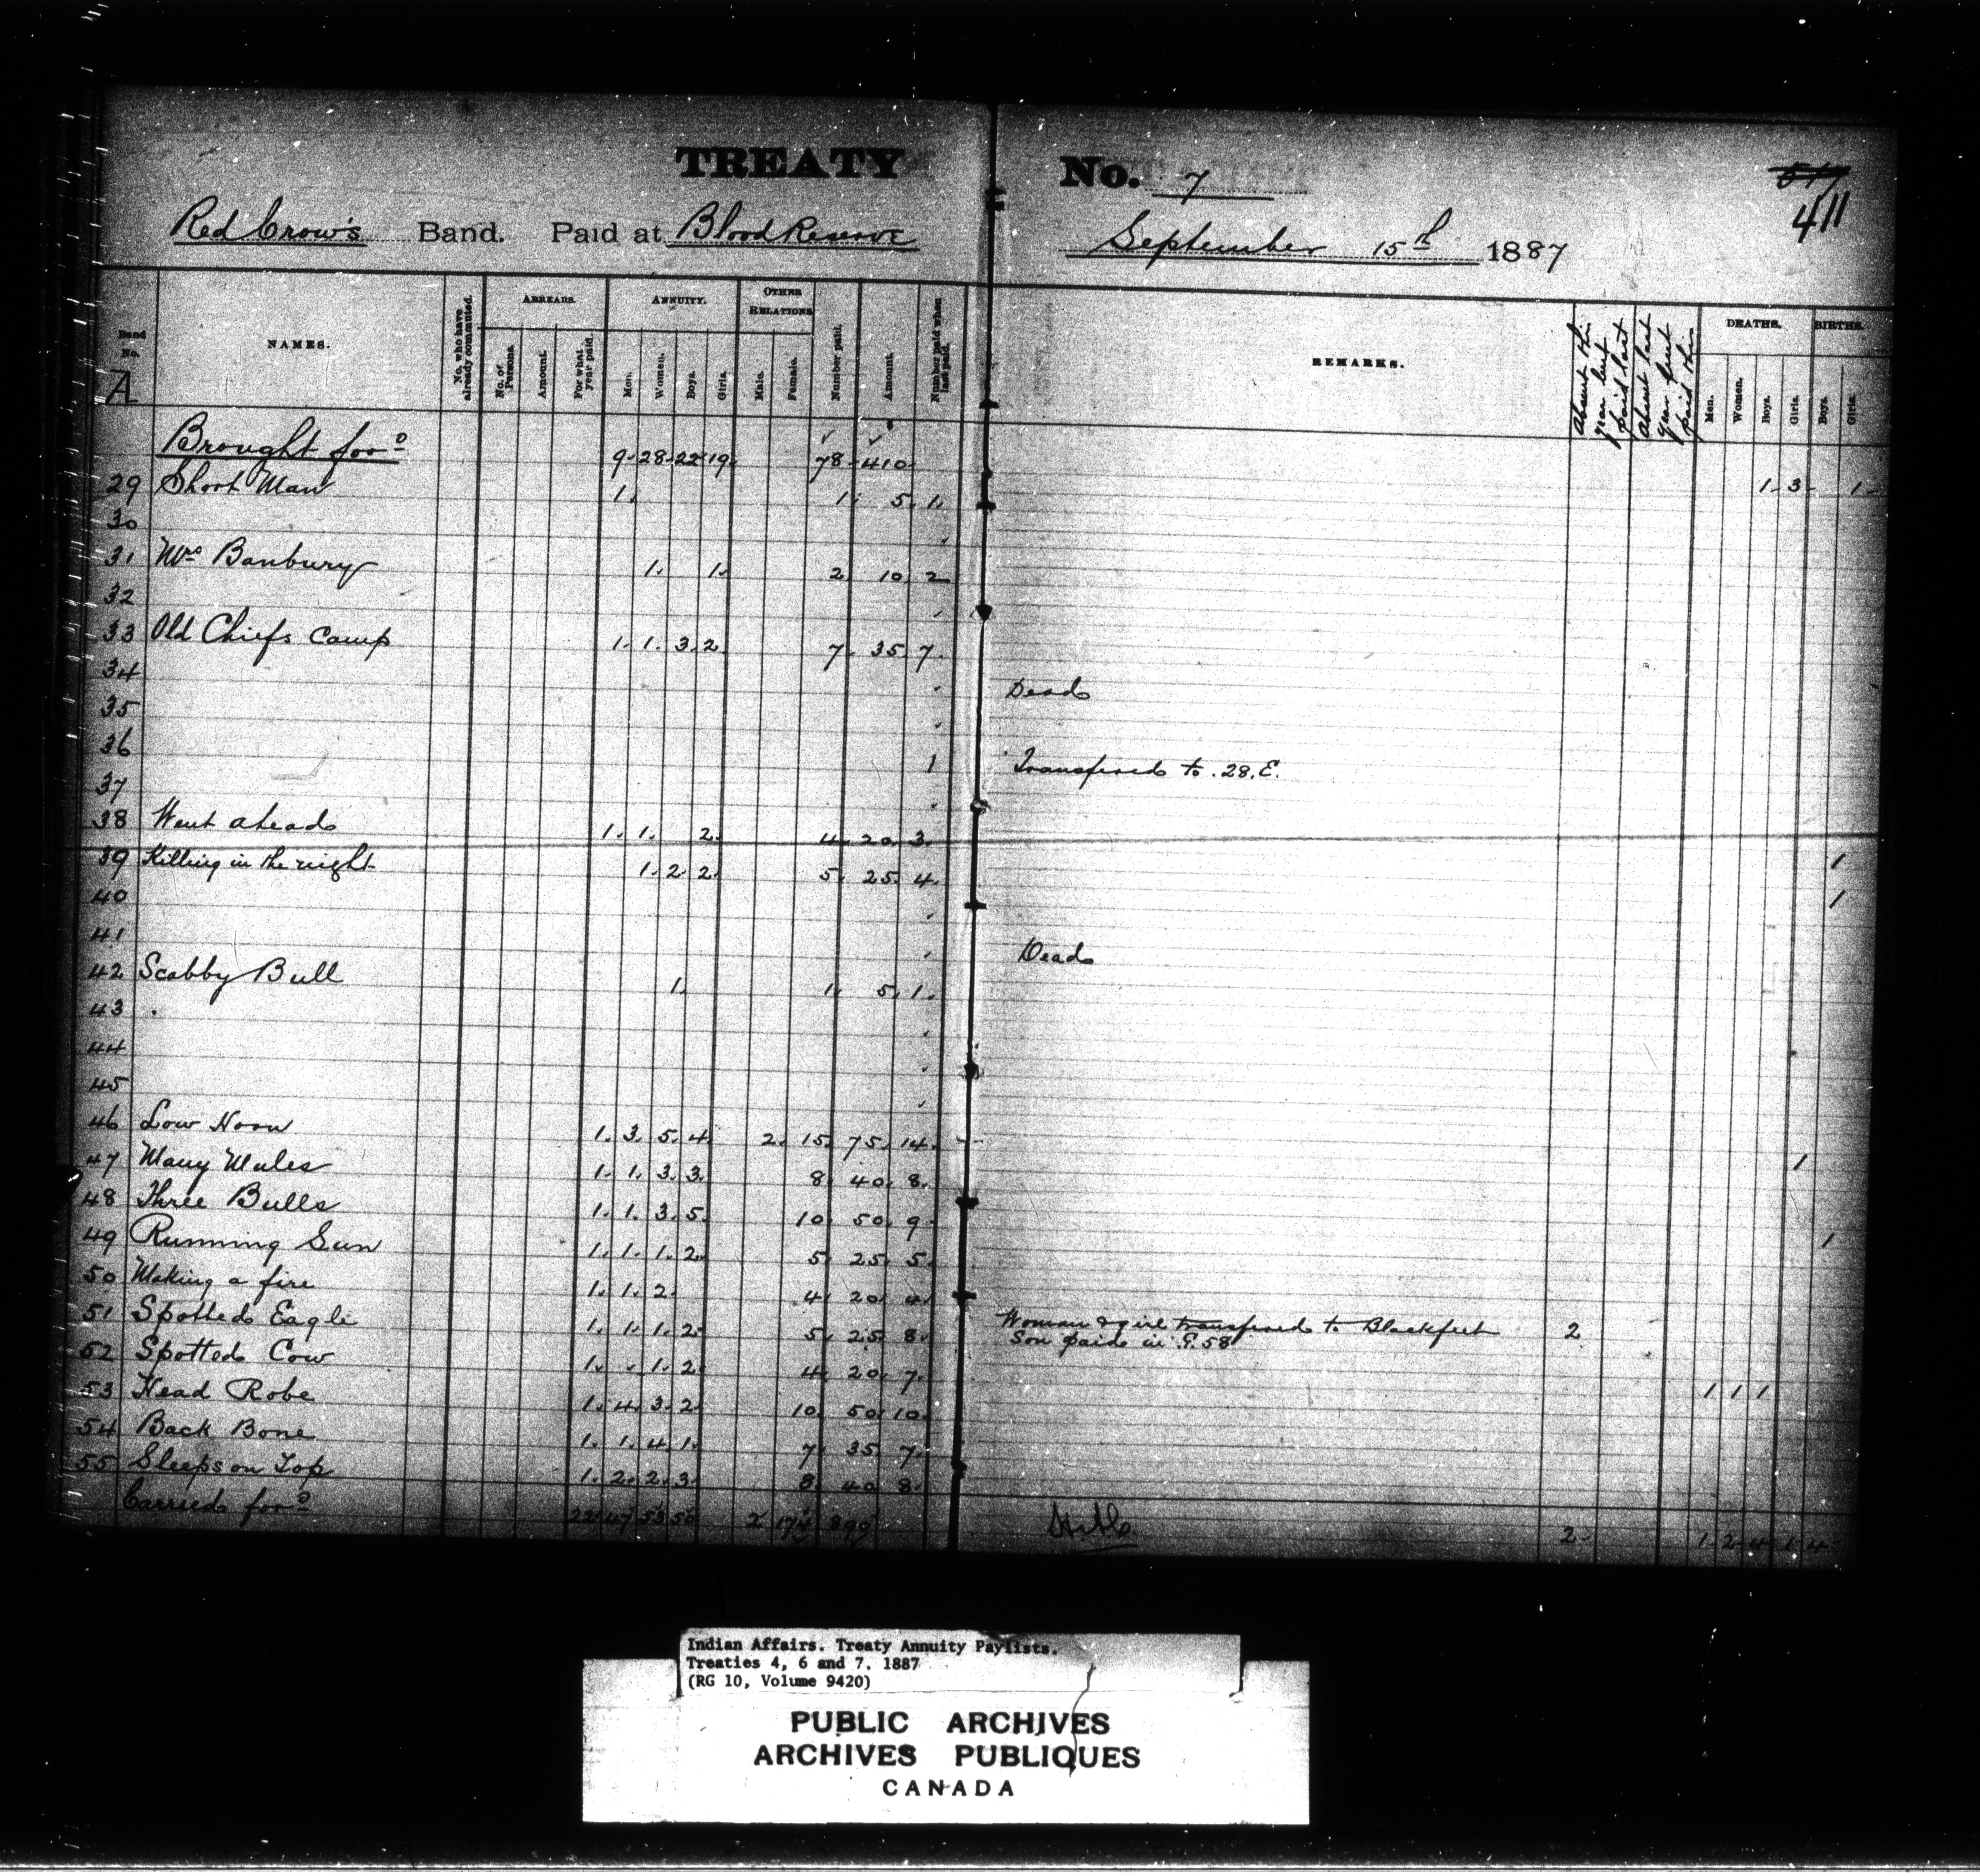 TREATY No. 7
517
411
Red Crow's Band. Paid at Blood Reserve September 15th 1887
Band No. A NAMES. No. who have already commuted. ARREARS. No. of Persons. Amount. For what year paid. ANNUITY. Men. Women. Boys. Girls. OTHER RELATIONS Male. Female. Number paid. Amount. Number paid when last paid. REMARKS. Absent this year but paid last Absent last year but paid this DEATHS. Men. Women. Boys. Girls. BIRTHS. Boys. Girls.
Brought for'd 9. 28. 22 19. 78. 410. 1. 3. 1.
29 Short Man 1. 1. 5. 1.
30
31 Mrs Banbury 1. 1. 2 10. 2
32
33 Old Chiefs Camp 1. 1. 3. 2. 7. 35. 7.
34 Dead
35
36 1 Transfered to .28.E.
37
38 Went ahead 1. 1. 2. 4. 20. 3. 1
39 Killing in the night 1. 2. 2. 5. 25. 4. 1
40
41 Dead
42 Scabby Bull 1. 1. 5. 1.
43
44
45
46 Low Horn 1. 3. 5. 4. 2. 15. 75. 14. 1
47 Many Mules 1. 1. 3. 3. 8. 40. 8.
48 Three Bulls 1. 1. 3. 5. 10. 50. 9. 1
49 Running Sun 1. 1. 1. 2. 5. 25. 5.
50 Making a fire 1. 1. 2. 4. 20. 4.
51 Spotted Eagle 1. 1. 1. 2. 5. 25. 8. Woman & girl transfered to Blackfeet 2
Son paid in E.58
52 Spotted Cow 1. 1. 2. 4. 20. 7. 1 1 1
53 Head Robe 1. 4. 3. 2. 10. 50. 10.
54 Back Bone 1. 1. 4. 1. 7. 35. 7.
55 Sleeps on Top 1. 2. 2. 3. 8. 40. 8.
Carried for'd 22 47 53 50 2 174 899 2. 1. 2. 4. 1. 4.
Indian Affairs. Treaty Annuity Paylists.
Treaties 4, 6 and 7. 1887
(RG 10, Volume 9420)
PUBLIC ARCHIVES
ARCHIVES PUBLIQUES
CANADA